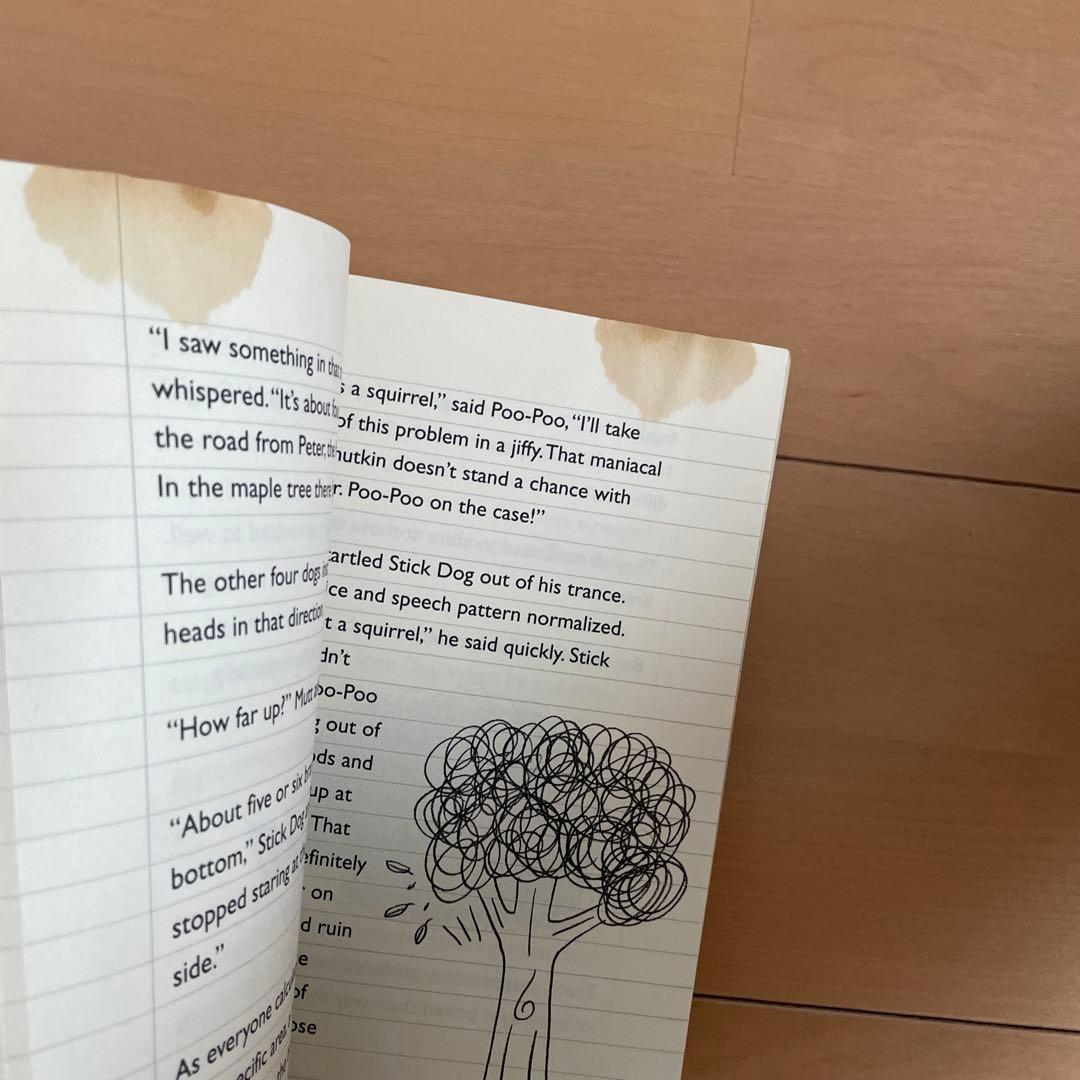 “I saw something in that
whispered. “It’s about
the road from Peter, the
In the maple tree there
The other four dogs
heads in that direction
“How far up?” Mutt
“About five or six
bottom,” Stick Dog
stopped staring at
side.”
As everyone
ecific area
the
s a squirrel,” said Poo-Poo, “I’ll take
of this problem in a jiffy. That maniacal
nutkin doesn’t stand a chance with
r. Poo-Poo on the case!”
artled Stick Dog out of his trance.
ice and speech pattern normalized.
t a squirrel,” he said quickly. Stick
dn’t
oo-Poo
g out of
ds and
up at
That
efinitely
on
d ruin
e
of
ose